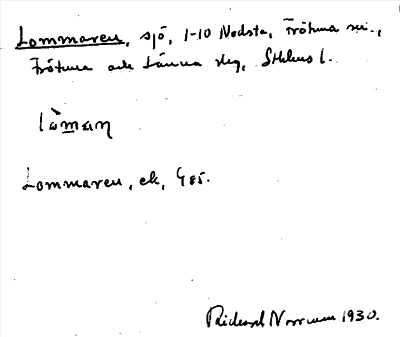 Lommaren, sjö, 1-10 Nodsta, Frötuna sn.,
Frötuna och Länna skg, Sthlms l.
lòmaŋ
Lommaren, ek, G 85.
Rickard Norrman 1930.